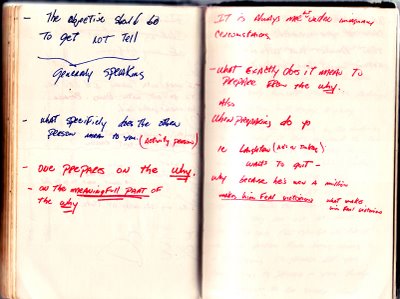 - The objective should be
To get not Tell
Generally speaking
- what specificly does the other
person mean to you. (activity person)
- One prepares on the why.
- on the meaningfull part of
the why
It is always me under imaginary
circumstances
- what exactly does it mean to
prepare from the why.
Also
When preparing do
ie Laughton
wants to quit -
why because he's won a million
makes him feel victorious what makes
him feel victorious